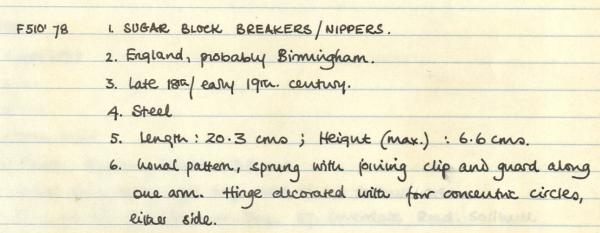 F510' 78 1. SUGAR BLOCK BREAKERS/NIPPERS.
2. England, probably Birmingham.
3. Late 18th/early 19th. century.
4. Steel
5. Length : 20.3 cms ; Height (max.) : 6.6 cms.
6. Usual pattern, sprung with joining clip and guard along
one arm. Hinge decorated with four concentric circles,
either side.